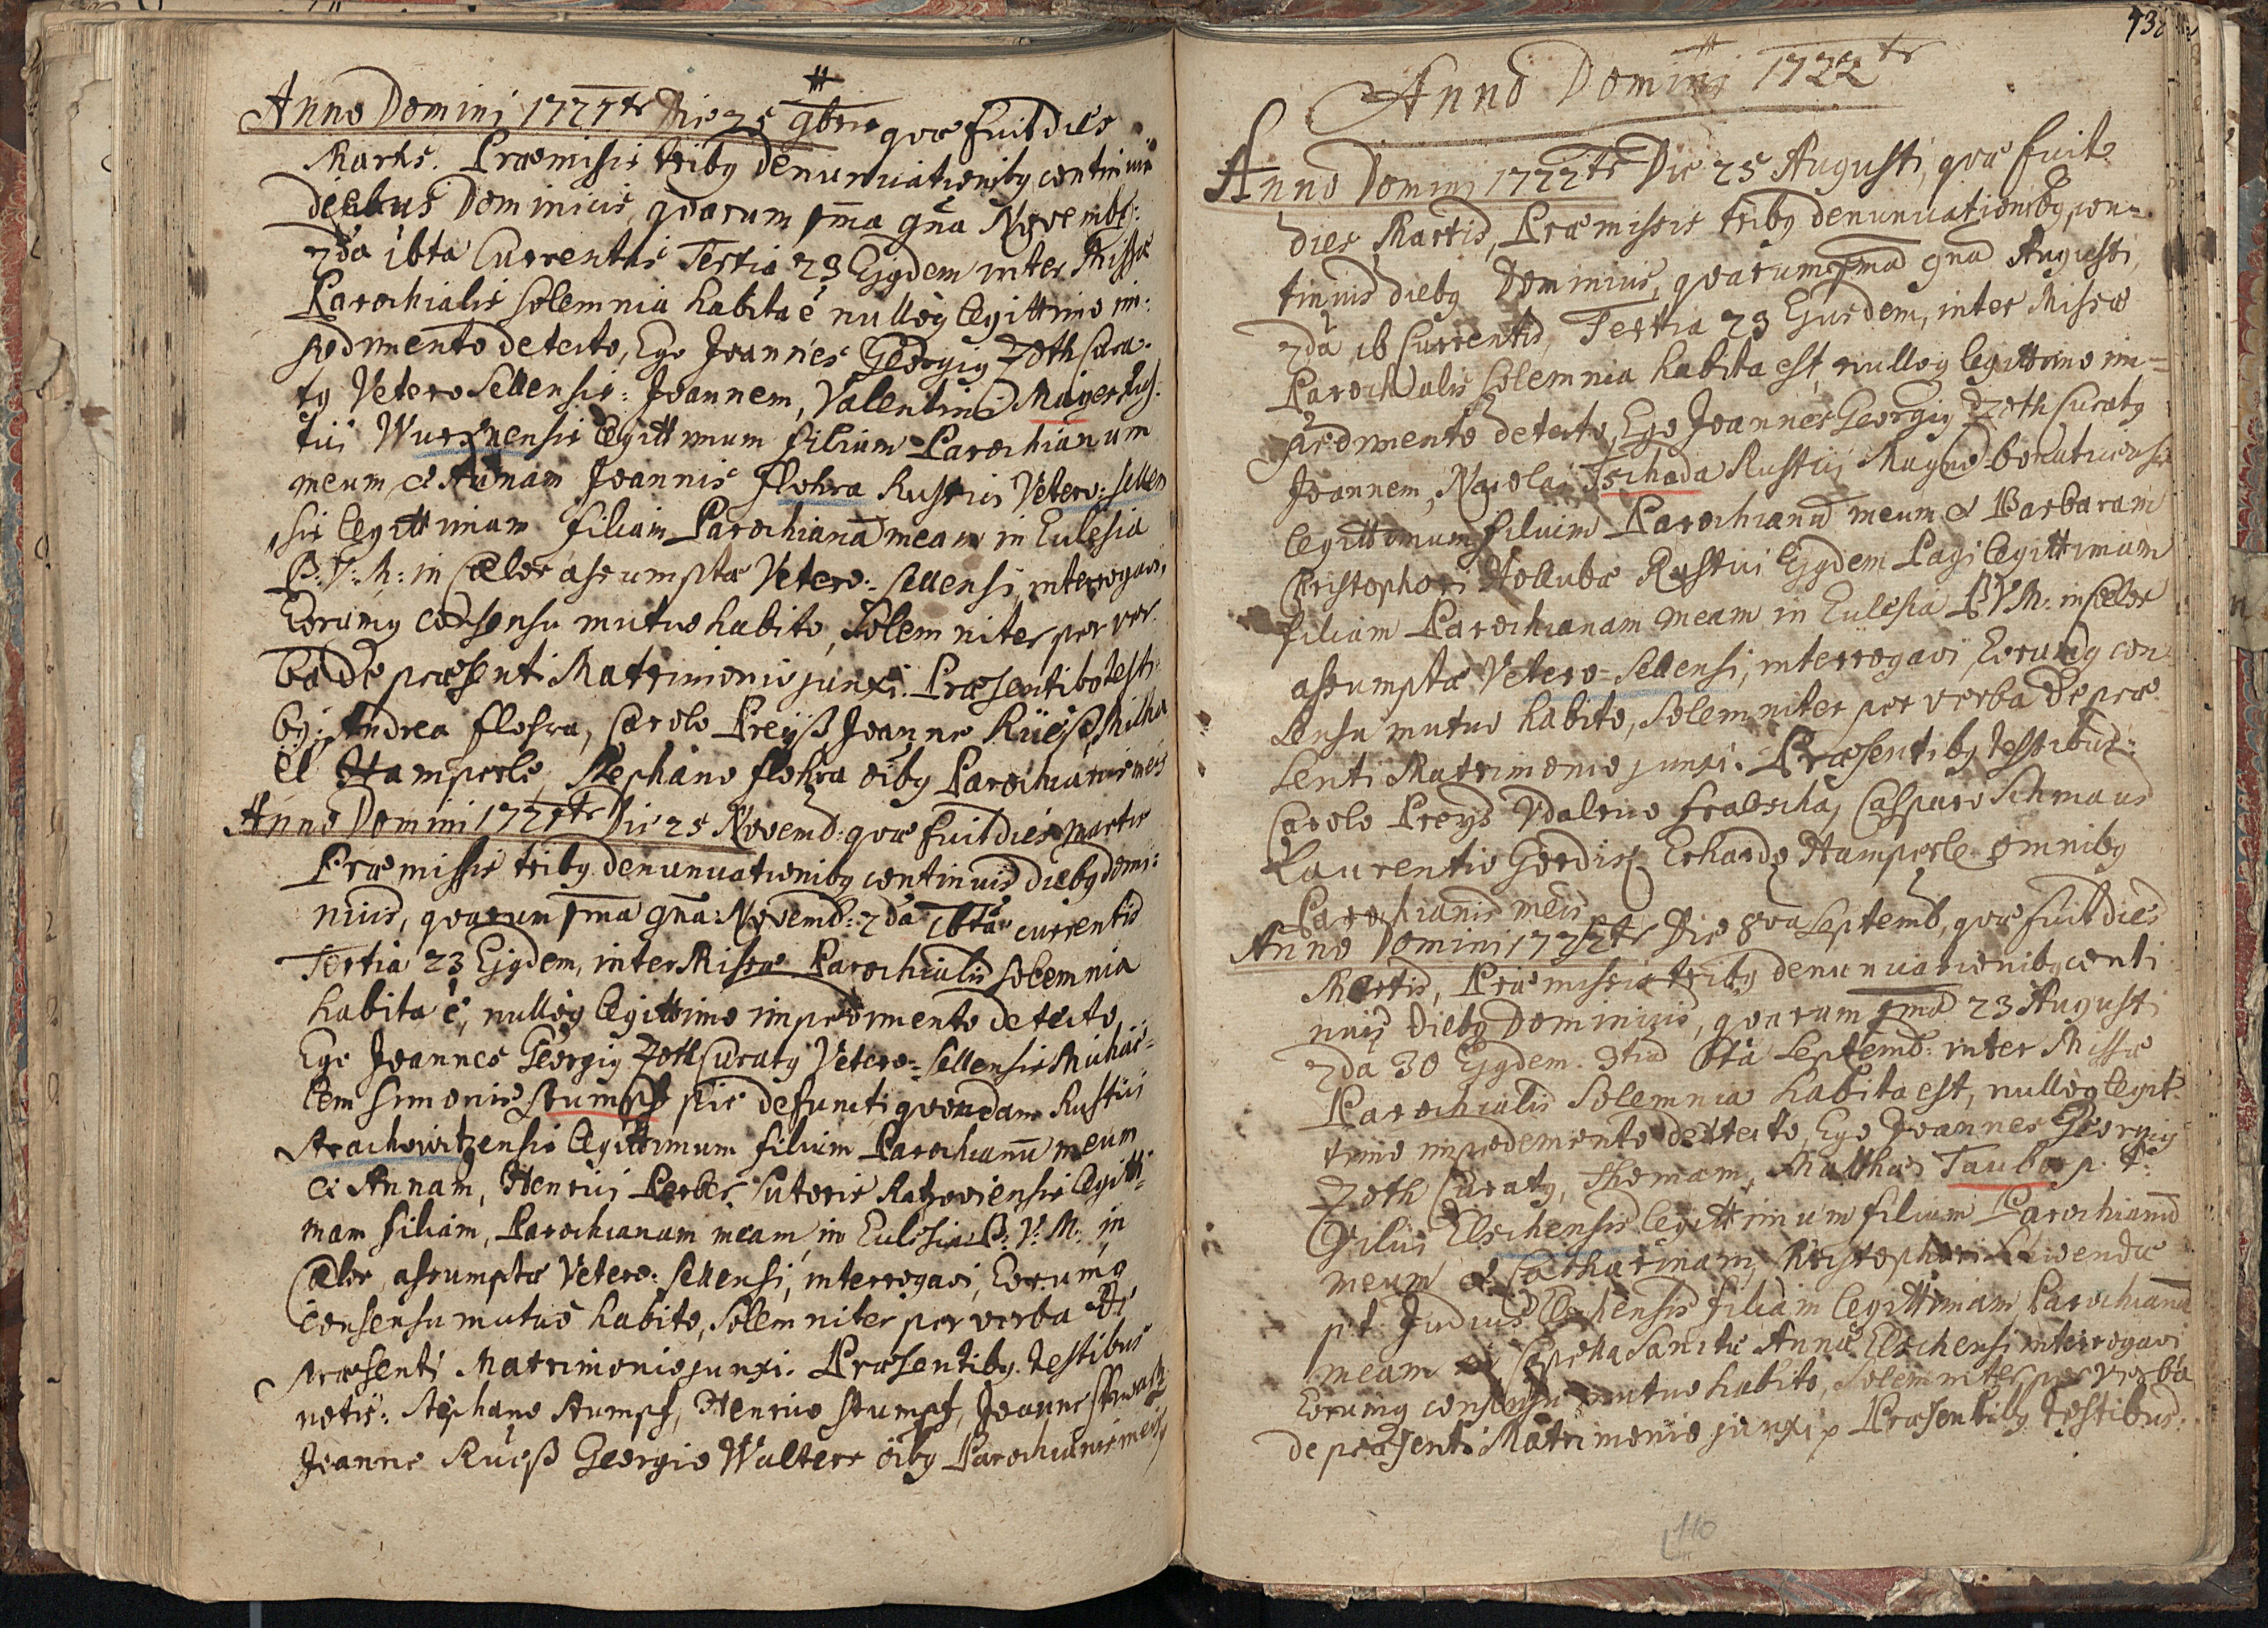 Anno Domini 1721tr Die 25 9bris quæ fuit dies
Martis. Præmissis tribq denunciationibq continuis
diebus Dominicis, quarum 1ma 9na Novembr:
2da 16ta Currentis Tertia 23 Ejqdem inter Missæ
Parochialis solemnia habita e nulloq legittimo im:
pedimento detecto, Ego Joannes Georgiq Zoth Cura-
tq Vetero Sellensis: Joannem, Valentini Mayer Rus-
tici legittimum filium Parochianum
meum et Annam Joannis Flohra Rustici Vetero: sellen
sis legittimam filiam Parochianã meam in Eclesia
B: V: M: in Cælos assumptæ Vetero: Sellensi, interrogavi,
Eorumq consensu mutuo habito, Solemniter per ver-
ba de præsenti Matrimonio junxi. Præsentibq testi-
bq: Andrea Flohra, Carolo Preyß, Joanne Rüeß, Micha
el Hamperle, Stephano Flohra oibq Parochianis meis
Anno Domini 1721tr Die 25 Novemb: quæ fuit dies Martis
Præmissis tribq denunciationibq continuis diebq domi:
nicis, quarum 1ma 9na: Novemb: 2da 16ta currentis
Tertia 23 Ejqdem, inter Missæ Parochialis solemnia
habita e, nulloq legittimo impedimento detecto
Ego Joannes Georgiq Zoth Curatq Vetero: Sellensis Michae-
lem Simonis Stumpf pie defuncti quondam Rustici
Strachowitzensis legittimum filium Parochianũ meum
et Annam, Henrici Sutoris legitti-
mam filiam, Parochianam meam, in Eclesia B: V: M: in
Cælos assumptæ Vetero: Sellensi, interrogavi, Eorumq
consensu mutuo habito, Solemniter per verba de
præsenti Matrimonio junxi. Præsentibq testibus
notis: Stephano Stumpf, Henrico Stumpf, Joanne
Joanne Rueß Georgio Walter oibq Parochianis meis
Anno Domini 1722tr
Anno Domini 1722tr Die 25 Augusti, quæ fuit
dies Martis, Præmissis tribq denunciationibq con=
tinuis diebq Dominicis, quarum 1ma 9na Augusti,
2da 16 Currentis, Tertia 23 Ejusdem, inter Missæ
Parochialis solemnia habita est, nulloq legittimo im=
pedimento detecto, Ego Joannes Georgiq Zoth Curatq
Joannem, Nicolai Tschada Rustici
legittimum filium Parochianũ meum et Barbaram
Christophori Hollubæ Rustici Ejqdem Pagi legittimam
filiam Parochianam meam in Eclesia B V M: in Cælos
assumptæ Vetero=Sellensi, interrogavi Eorumq con
sensu mutuo habito, Solemniter per verba de præ
senti Matrimonio junxi. Præsentibq testibus:
Carolo Preys Udalrico Casparo Schmaus
Laurentio Erhardo Hamperle omnibq
Parochianis meis
Anno Domini 1722tr Die 8va Septemb, quæ fuit dies
Martis, Præmissis tribq denunciationibq conti
nuis Diebq Dominicis, quarum 1ma 23 Augusti
2da 30 Ejqdem. 3tia 6ta Septemb: inter Missæ
Parochialis Solemnia habita est, nulloq legit-
timo impedemento detecto, Ego Joannes Georgiq
Zoth Curatq, Thomam, Matthæi Tauber p. t.
Elschensis legittimum filium Parochianũ
meum et Catharinam, Christophori
p. t. Judicis Elschensis filiam legittimam Parochianã
meam Sanctæ Annæ Elschensi interrogavi
Eorumq consensu mutuo habito, Solemniter per verba
de præsenti Matrimonio junxi Præsentibq testibus:
110